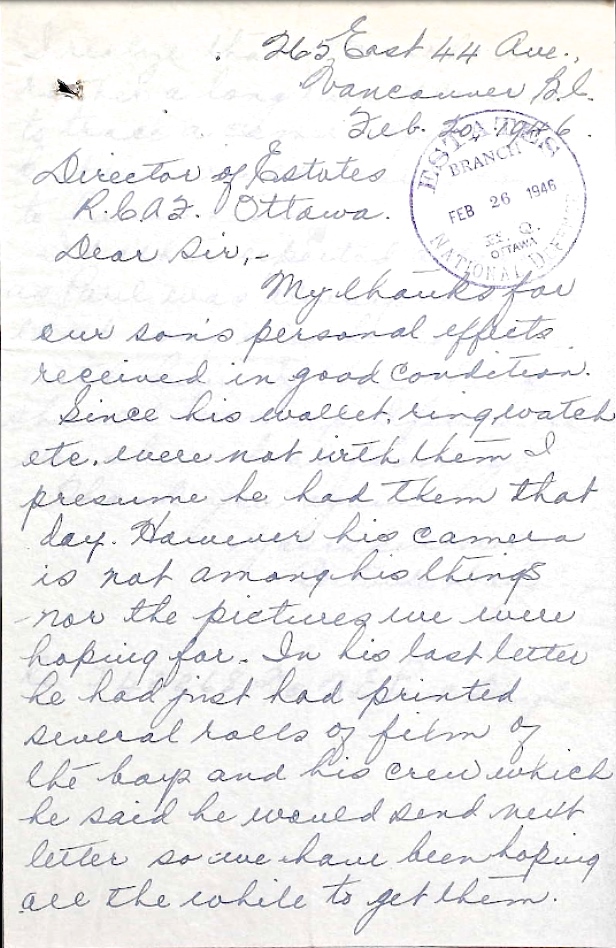 265 East 44 Ave.,
Vancouver B.C.
Feb. 20, 1946.
ESTATES
BRANCH
FEB 26 1946
H.Q.
OTTAWA
NATIONAL DEFENCE
Director of Estates
R.C.A.F. Ottawa.
Dear Sir,-
My thanks for
our son's personal effects
received in good condition.
Since his wallet, ring, watch
etc. were not with them I
presume he had them that
day. However his camera
is not among his things
nor the pictures we were
hoping for. In his last letter
he had just had printed
several rolls of film of
the boys and his crew which
he said he would send next
letter so we have been hoping
all the while to get them.